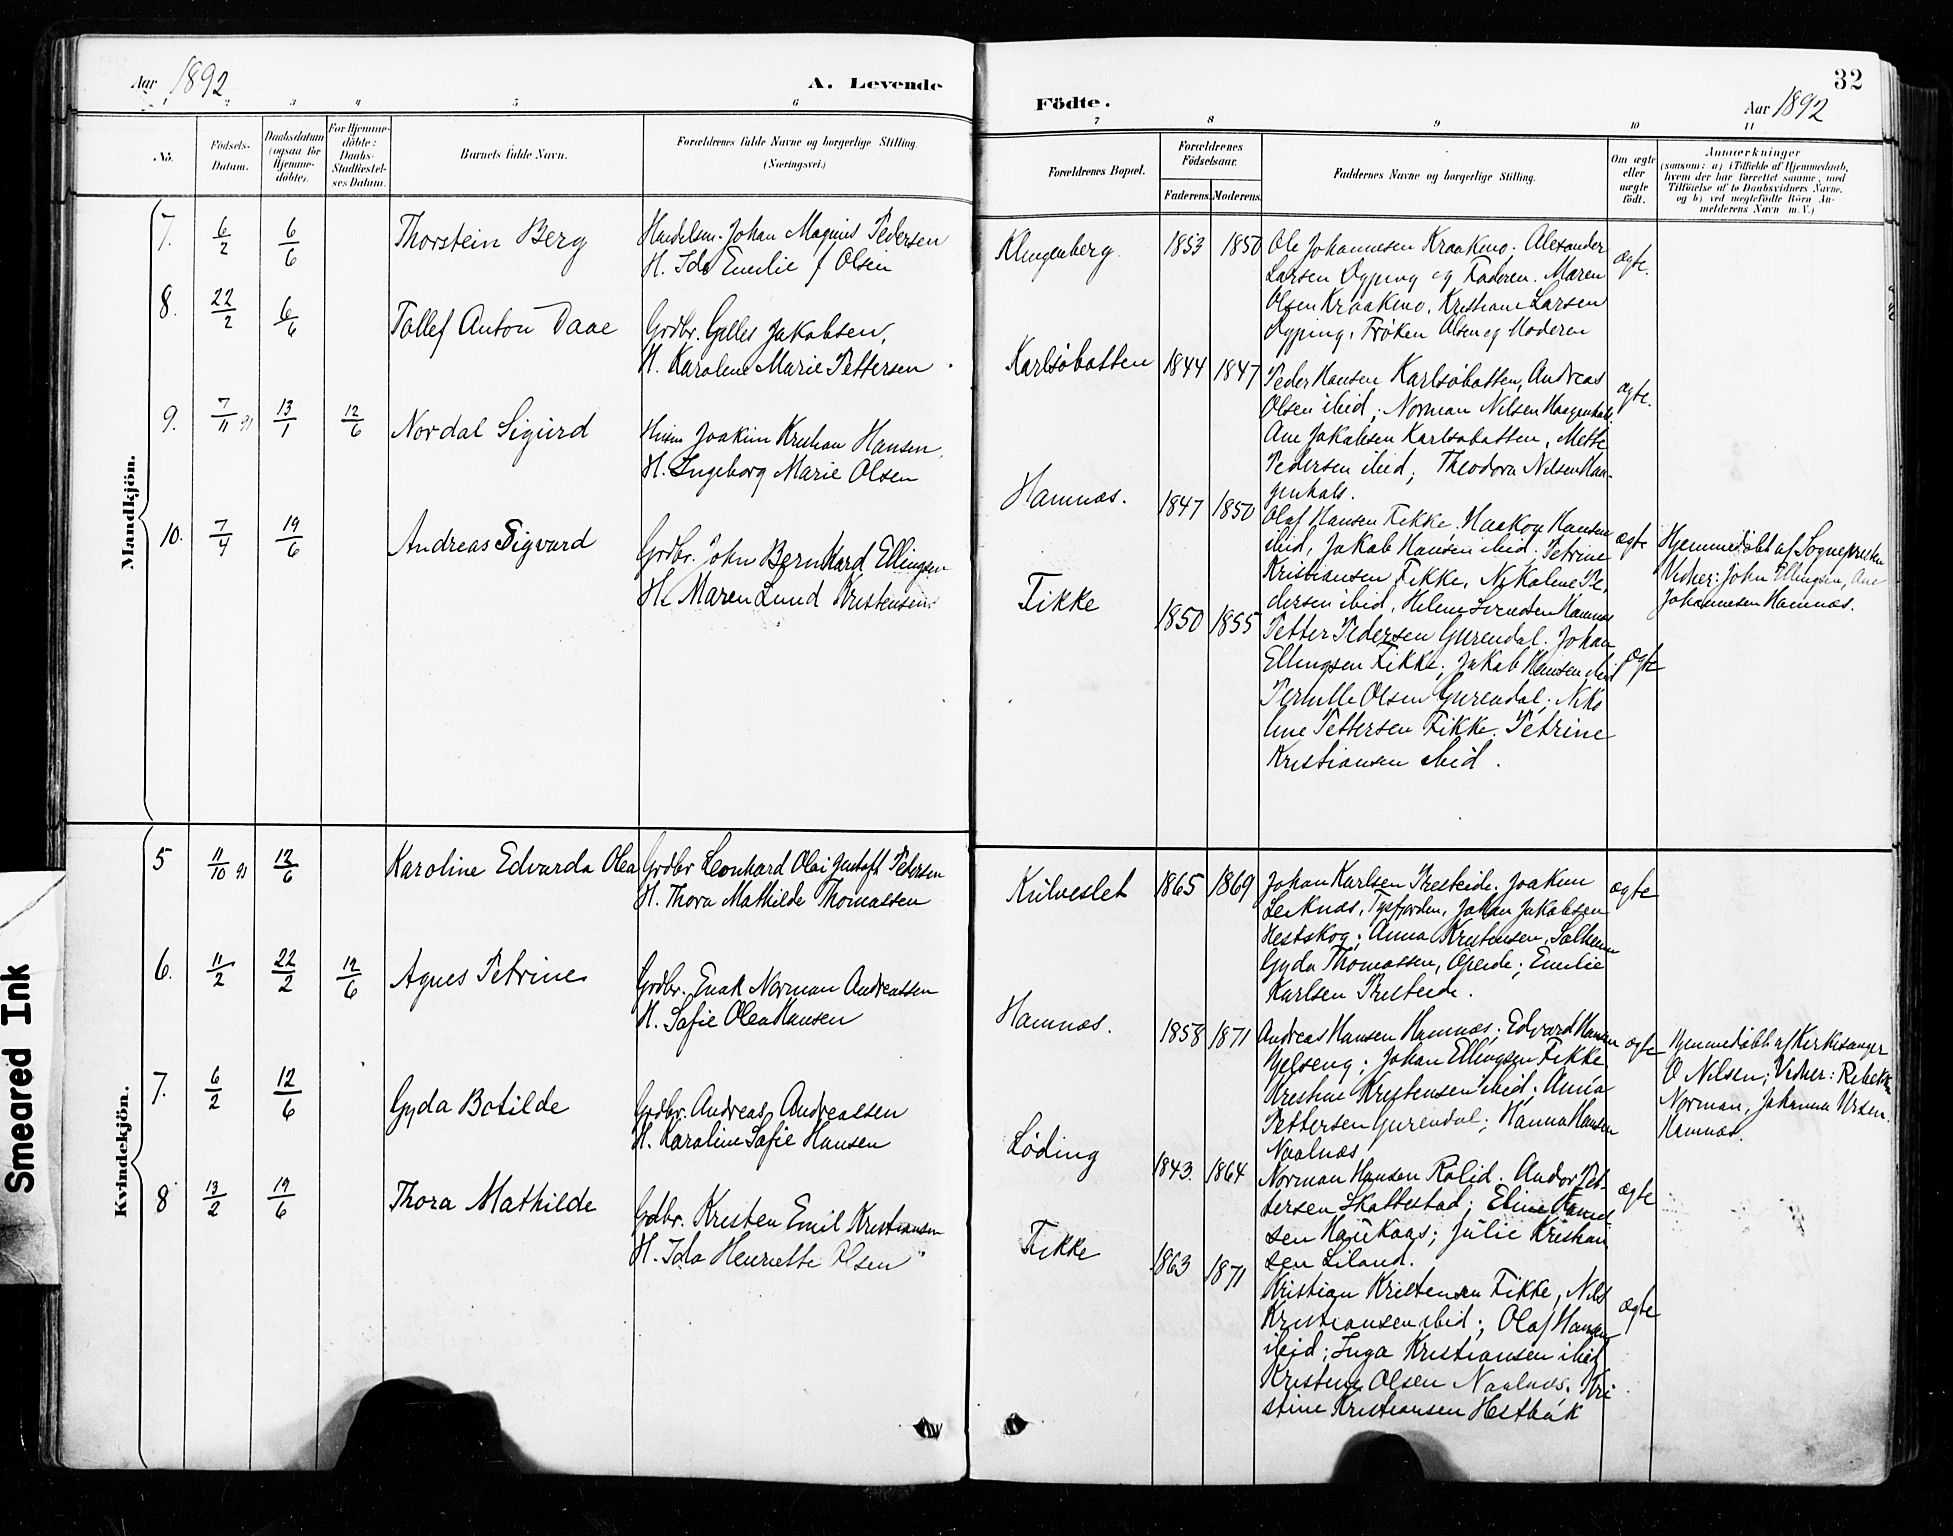 Aar 1892
A. Levende
1 2 3 4 5 6
No.
Födsels-Datum.
Daabsdatum (ogsaa for Hjemme-döbte).
For Hjemme-döbte: Daabs-Stadfæstel-ses Datum.
Barnets fulde Navn.
Forældrenes fulde Navne og borgerlige Stilling. (Næringsvei.)
Mandkjön.
7. 6/2 6/6 Thorstein Berg
Handelsm. Johan Magnus Pedersen
H. Ida Emilie f Olsen
8. 22/2 6/6 Tollef Anton Daae
Grdbr. Jakobsen,
H. Karoline Marie Pettersen
9. 7/11 91 13/1 12/6 Nordal Sigurd
Joakim Kristian Hansen,
H. Ingeborg Marie Olsen
10. 7/4 19/6 Andreas Sigvard
Grdbr. John Bernhard Ellingsen
H. Maren Lund Kristensen
Kvindekjön.
5 11/10 91 12/6 Karoline Edvarda Olea
Grdbr Leonhard Olai Gustaft Pedersen
H. Thora Mathilde Thomassen
6. 11/2 22/2 12/6 Agnes Petrine
Grdbr. Enok Norman Andreassen
H. Safie Olea Hansen
7. 6/2 12/6 Gyda Botilde
Grdbr. Andreas Andreassen
H. Karoline Safie Hansen
8 13/2 19/6 Thora Mathilde
Gdbr. Kristen Emil Kristiansen
H. Ida Henriette Olsen
Smeared Ink
32
Födte.
Aar 1892
7 8 9 10 11
Forældrenes Bopæl.
Forældrenes Födselsaar.
Faderens. Moderens.
Faddernes Navne og borgerlige Stilling.
Om ægte eller uægte födt.
Anmærkninger
(saasom: a) i Tilfælde af Hjemmedaab,
hvem der har forrettet samme, med
Tilföielse af to Daabsvidners Navne,
og b) ved uægtefödte Börn An-
melderens Navn m. V.)
Klingenberg 1853 1850
Ole Johannesen Kraakmo, Alexander
Larsen Dyping og Faderen. Maren
Olsen Kraakmo, Kristiane Larsen
Dyping, Frøken Olsen og Moderen
ægte.
Karlsøbotten 1844 1847
Peder Hansen Karlsøbotten, Andreas
Olsen ibid, Norman Nilsen Haagenhals
Ane Jakobsen Karlsøbotten, Mette
Pedersen ibid, Theodora Nilsen Haa-
genhals.
ægte.
Hamnæs. 1847 1850
Olaf Hansen Fikke. Haakon Hansen
ibid, Jakob Hansen ibid. Petrine
Kristiansen Fikke, Nikoline Pe-
dersen ibid, Helene Hamnæs
ægte
Hjemmedøbt af Sognepresten
Vidner: John Ellingsen, Ane
Johannesen Hamnæs.
Fikke 1850 1855
Petter Pedersen Gurendal. Johan
Ellingsen Fikke, Jakob Hansen ibid
Pernille Olsen Gurendal, Niko
line Pettersen Fikke. Petrine
Kristiansen ibid.
ægte
Kulveslet 1865 1869
Johan Karlsen Presteide. Joakim
Leiknæs, Tysfjorden, Johan Jakobsen
Hestskog; Anna Kristensen,
Gyda Thomassen, Opeide; Emilie
Karlsen Presteide.
ægte
Hamnæs. 1858 1871
Andreas Hansen Hamnæs, Edvard Hansen
; Johan Ellingsen Fikke
Kristine Kristensen ibid; Anna
Pettersen Gurendal; Hanna Hansen
Naalnæs
ægte
Hjemmedøbt af Kirkesanger
O Nilsen; Vidner: Rebekka
Norman, Johanna
Hamnæs.
Løding 1843. 1864
Norman Hansen Rolid. Andor Pet-
tersen Skottestad; Eline
sen Haukaas; Julie Kristian
sen Liland.
ægte
Fikke 1863 1871
Kristian Kristensen Fikke, Nils
Kristiansen ibid; Olaf Hansen
ibid; Inga Kristiansen ibid
Kristine Olsen Naalnæs. Kri
stine Kristiansen Hestbak
ægte